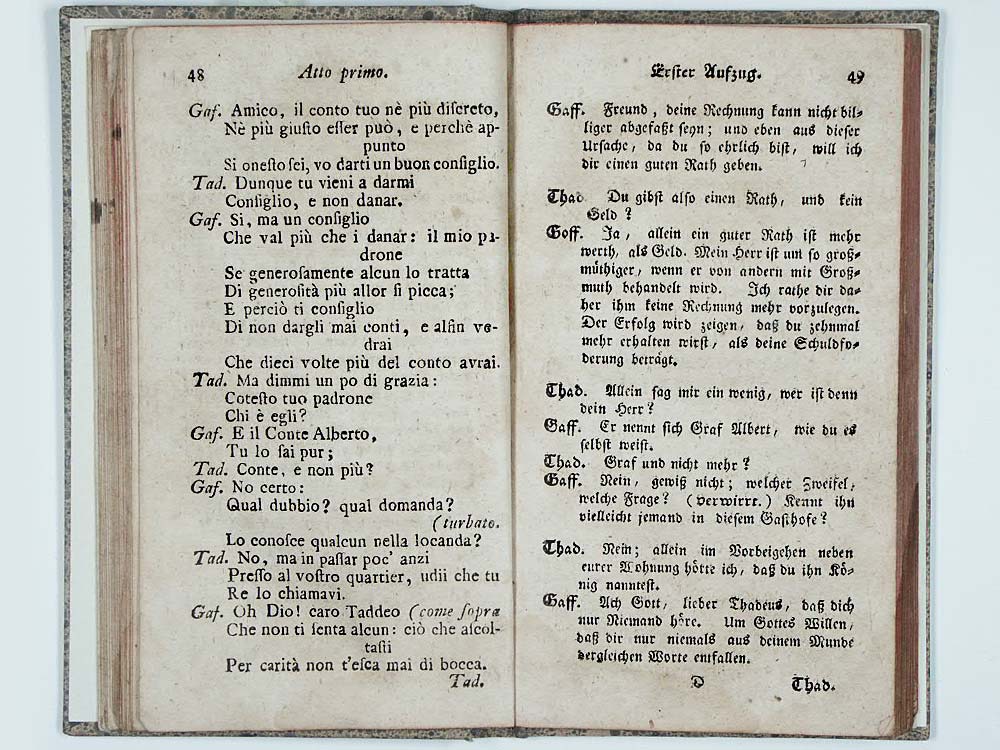 48 Atto primo.
Gaf. Amico, il conto tuo nè più diſcreto,
Nè più giuſto eſſer può, e perchè ap-
punto
Si oneſto ſei, vo darti un buon conſiglio.
Tad. Dunque tu vieni a darmi
Conſiglio, e non danar.
Gaf. Si, ma un conſiglio
Che val più che i danar: il mio pa-
drone
Se generoſamente alcun lo tratta
Di generoſità più allor ſi picca;
E perciò ti conſiglio
Di non dargli mai conti, e alfin ve-
drai
Che dieci volte più del conto avrai.
Tad. Ma dimmi un po di grazia:
Coteſto tuo padrone
Chi è egli?
Gaf. E il Conte Alberto,
Tu lo ſai pur;
Tad. Conte, e non più?
Gaf. No certo:
Qual dubbio? qual domanda?
(turbato.
Lo conoſce qualcun nella locanda?
Tad. No, ma in paſſar poc' anzi
Preſſo al voſtro quartier, udii che tu
Re lo chiamavi.
Gaf. Oh Dio! caro Taddeo (come ſopra
Che non ti ſenta alcun: ciò che aſcol-
taſti
Per carità non t'eſca mai di bocca.
Tad.
Erſter Aufzug. 49
Gaff. Freund, deine Rechnung kann nicht bil-
liger abgefaßt ſeyn; und eben aus dieſer
Urſache, da du ſo ehrlich biſt, will ich
dir einen guten Rath geben.
Thad. Du gibſt alſo einen Rath, und kein
Geld?
Goff. Ja, allein ein guter Rath iſt mehr
werth, als Geld. Mein Herr iſt um ſo groß-
müthiger, wenn er von andern mit Groß-
muth behandelt wird. Ich rathe dir da-
her ihm keine Rechnung mehr vorzulegen.
Der Erfolg wird zeigen, daß du zehnmal
mehr erhalten wirſt, als deine Schuldfo-
derung beträgt.
Thad. Allein ſag mir ein wenig, wer iſt denn
dein Herr?
Gaff. Er nennt ſich Graf Albert, wie du es
ſelbſt weiſt.
Thad. Graf und nicht mehr?
Gaff. Nein, gewiß nicht; welcher Zweifel,
welche Frage? (verwirrt.) Kennt ihn
vielleicht jemand in dieſem Gaſthofe?
Thad. Nein; allein im Vorbeigehen neben
eurer Wohnung hötte ich, daß du ihn Kö-
nig nannteſt.
Gaff. Ach Gott, lieber Thadeus, daß dich
nur Niemand höre. Um Gottes Willen,
daß dir nur niemals aus deinem Munde
dergleichen Worte entfallen.
D Thad.